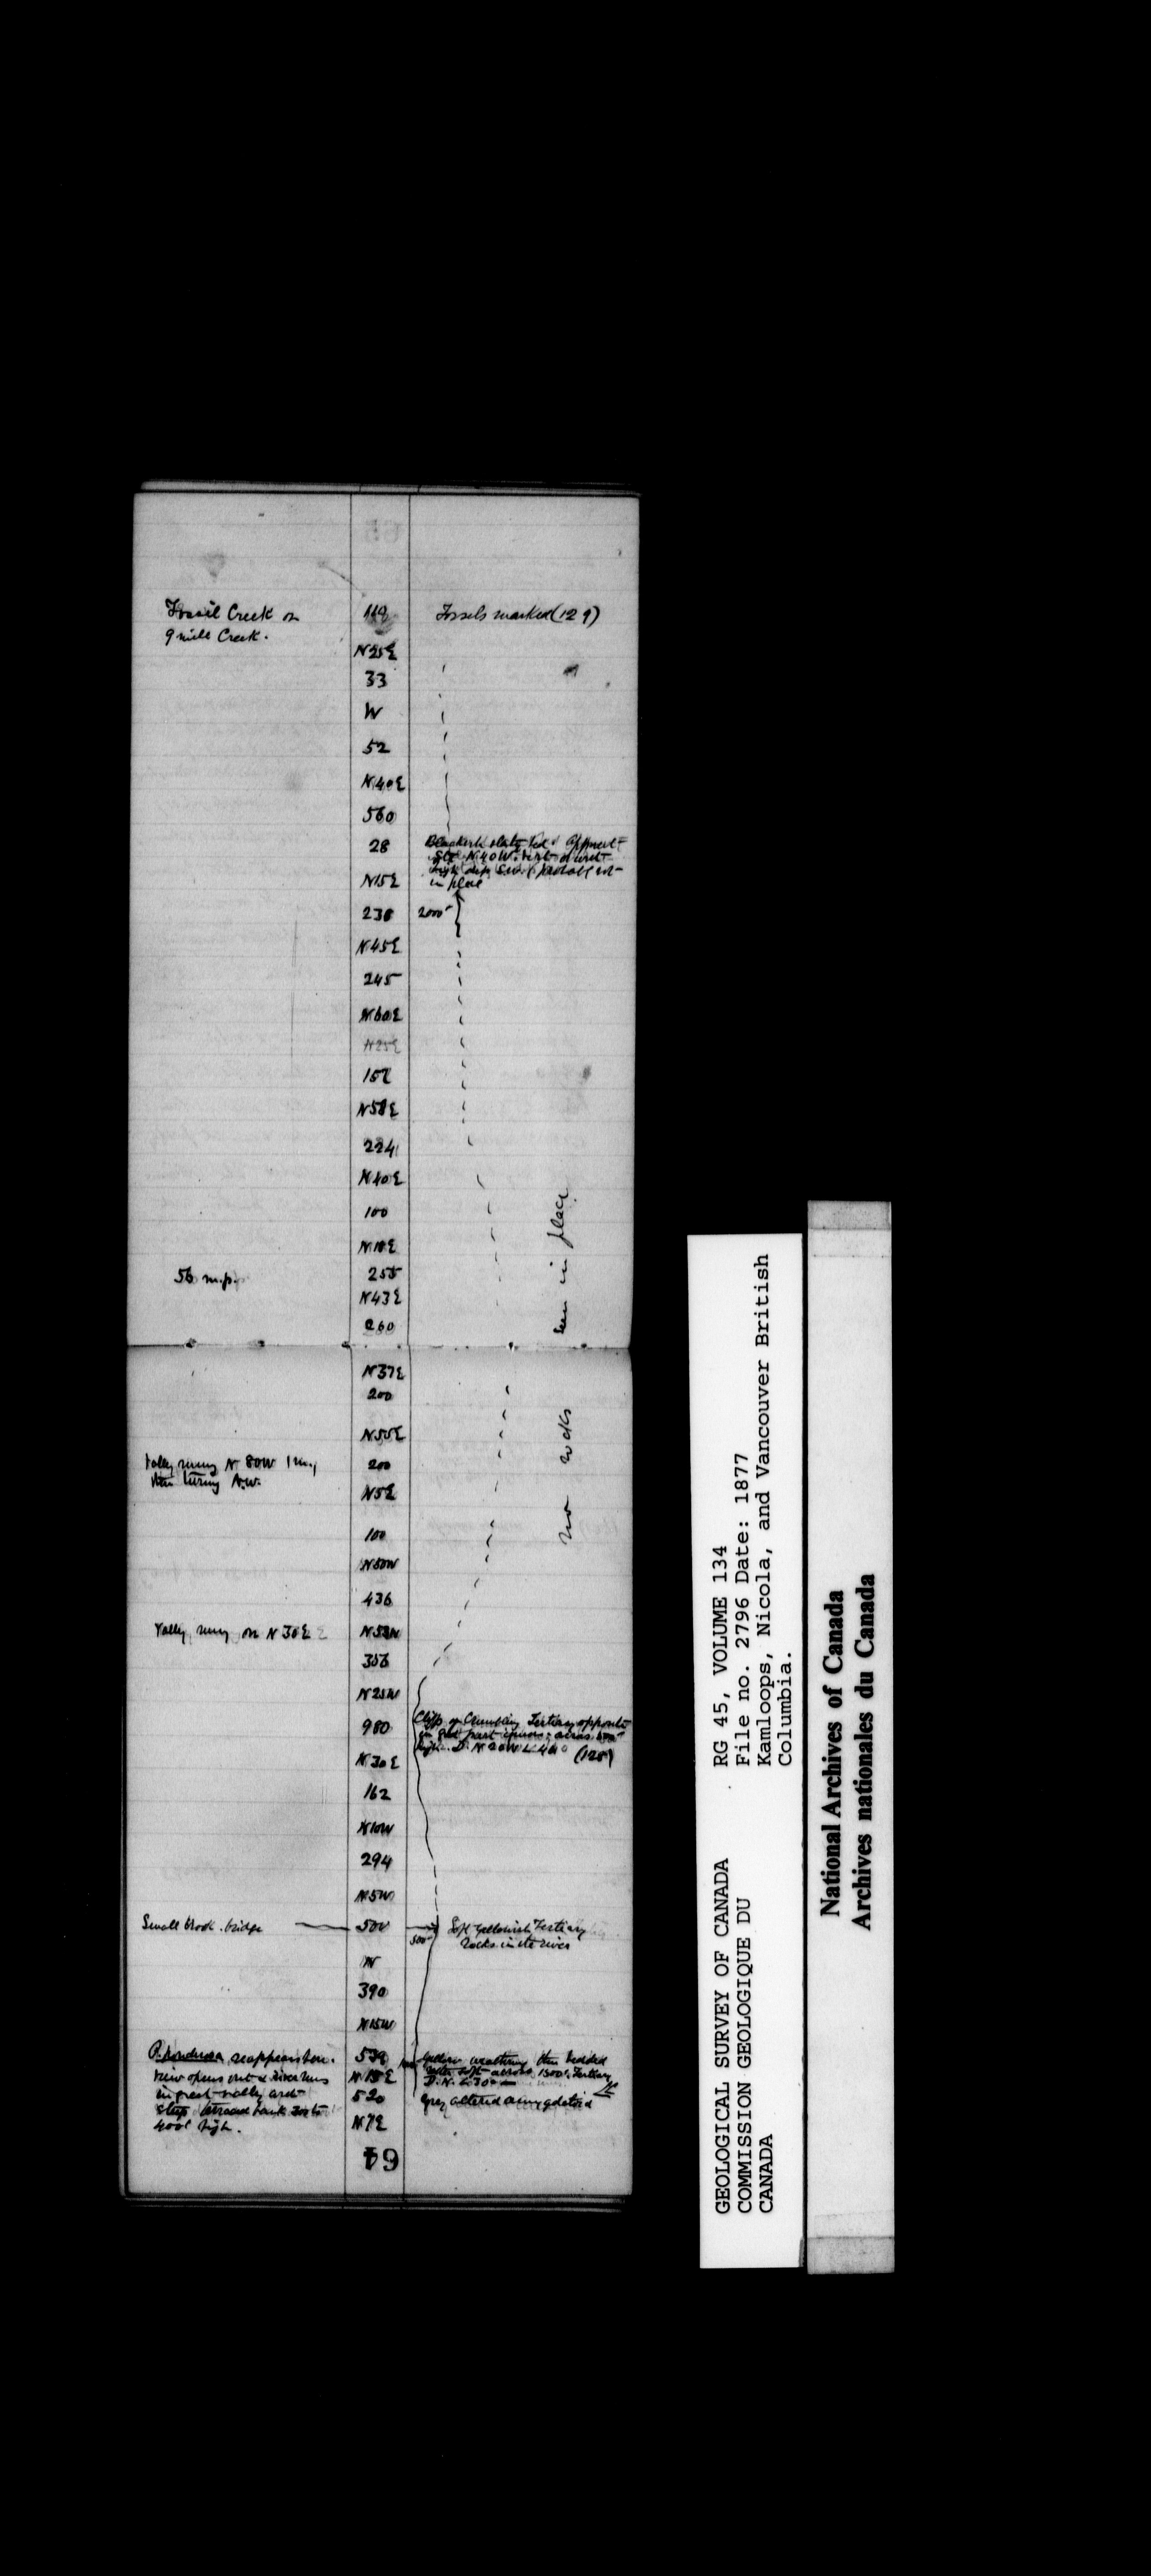 Fossil Creek or
9 mile Creek.
119
Fossils marked (129)
N25E
33
W
52
N40E
560
28
Blackish slaty bed opposite
N40W
in place
N15E
236
2000'
N45E
245
N60E
N25E
152
N58E
224
N40E
100
N18E
56 m.p.
255
N43E
260
N37E
200
N55E
Valley runs N 80W 1 m.,
then turning N.W.
200
N5E
100
N50W
436
Valley runs on N 30E
N53W
356
N25W
no rocks seen in place
980
Cliffs of crumbling Tertiary opposite
in great part
high. D. N 20W L 40° (128)
N30E
162
N10W
294
N5W
Small brook. bridge
500
500'
Soft yellowish Tertiary
rocks in the river
W
390
N15W
P. ponderosa reappears here.
View opens out & river runs
in great valley and
steep terraced bank 300 to
400' high.
539
Yellow weathering thin bedded
rather soft across 1500'. Tertiary
D. N. L 30°
N15E
520
Grey altered amygdaloid
N7E
64
GEOLOGICAL SURVEY OF CANADA
COMMISSION GEOLOGIQUE DU
CANADA
RG 45, VOLUME 134
File no. 2796 Date: 1877
Kamloops, Nicola, and Vancouver British
Columbia.
National Archives of Canada
Archives nationales du Canada